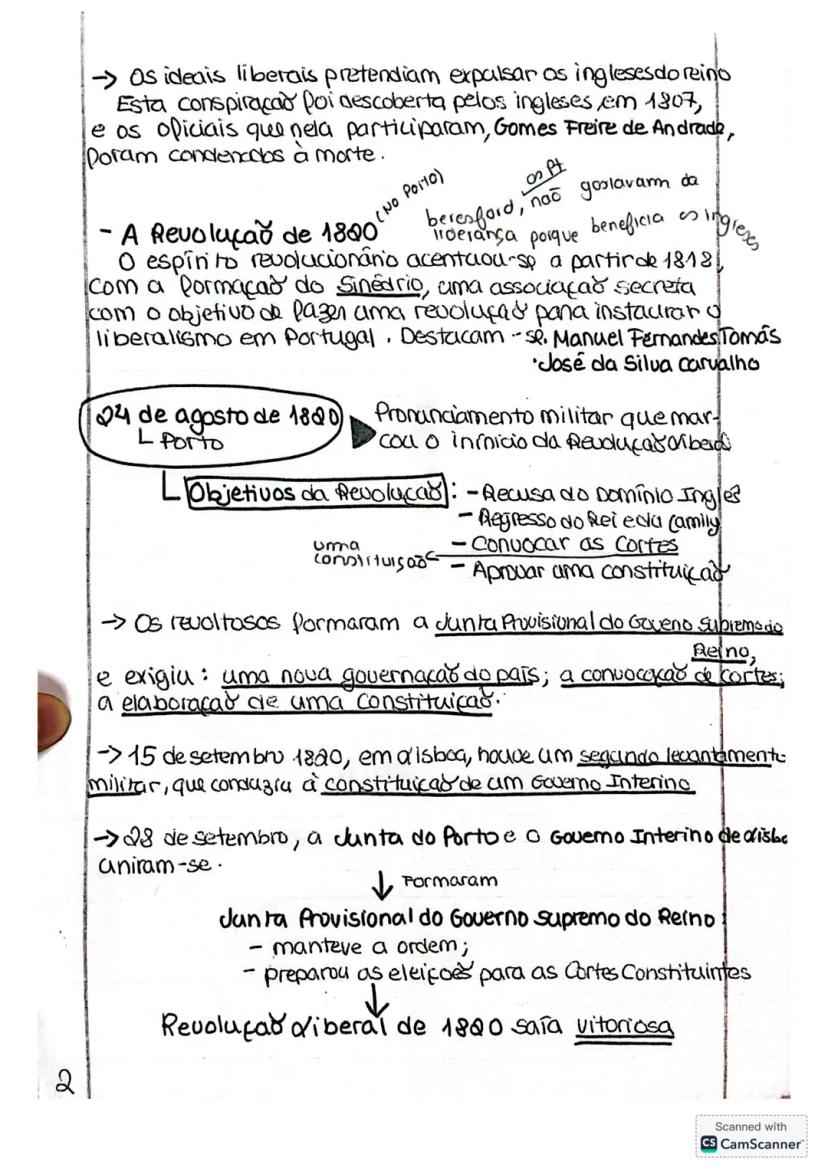 → Os ideais liberais pretendiam expulsar os ingleses do reino
Esta conspiração foi descoberta pelos ingleses, em 1807,
e os oficiais que nela participaram, Gomes Freire de Andrade,
foram condenados à morte.
- A Revolução de 1820 (NO PORTO)
os Pt
beresford, não gostavam da
liderança porque beneficia os ingleses
O espírito revolucionário acentuou-se a partir de 1818,
com a formação do Sinédrio, uma associação secreta
com o objetivo de fazer uma revolução para instaurar o
liberalismo em Portugal. Destacam-se. Manuel Fernandes Tomás
·José da Silva Carvalho
24 de agosto de 1820
└ Porto
Pronunciamento militar que mar-
cou o inínicio da Revolução Liberal
└ Objetivos da Revolução: - Recusa do Domínio Inglês
- Regresso do Rei e da family
- Convocar as Cortes
uma
constituição
- Aprovar uma constituição
→ Os revoltosos formaram a Junta Provisional do Goveno Supremo do
Reino,
e exigiu: uma nova governação do país; a convocação de cortes;
a elaboração de uma Constituição.
→ 15 de setembro 1820, em Lisboa, houve um segundo levantament
militar, que conduziu à constituição de um Governo Interino
→ 28 de setembro, a Junta do Porto e o Governo Interino de Lisbo
uniram-se.
↓ Formaram
Junta Provisional do Governo Supremo do Reino:
- manteve a ordem;
- preparou as eleições para as Cortes Constituintes
↓
Revolução Liberal de 1820 saía vitoriosa
2
Scanned with
CS CamScanner